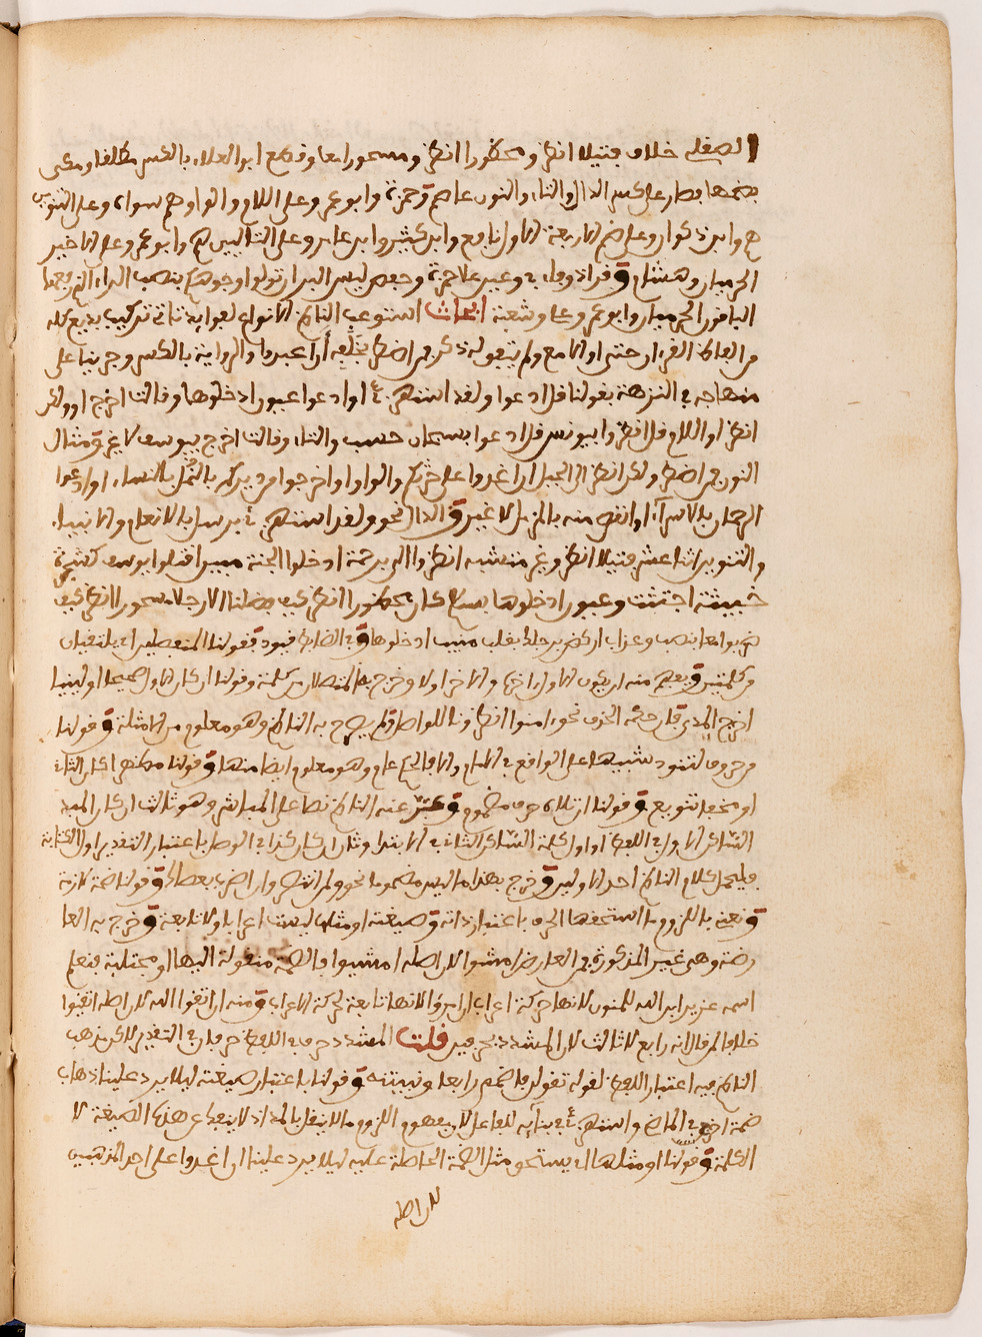 الصقلي خلاف فتيلا انظر ومحظورا انظر ومسحورا معا وقطع ابو العلاء بالكسر مطلقا ومكي
بضمها فصار على كسر الدال والتاء والنون عاصم وحمزة وابو عمرو وعلى اللام والواو هم سواه وعلى التنوين
هم وابن ذكوان وعلى ضم الاربعة الاول نافع وابن كثير وابن عامر وعلى التاليين هم وابو عمرو وعلى الاخير
الحرميان وهشام وقرا ذو فاء وعين علا حمزة وحفص ليس البر ان تولوا وجوهكم بنصب الراء الذي رفعها
الباقون الحرميان وابو عمرو وشعبة ابحاث استوعب الناظم الانواع لعوايد تاتي تركيب بديع كله
من القران حتى او الامع ولم يتعوله ذكر فمن اضطر والرواية بالكسر وجرينا على
منهاجه في النزهة بقولنا قل ادعوا ولقد استهزئ او ادعوا عيون ادخلوها وقالت اخرج او ولكن
انظر او اللام قل انظروا بيونس قل ادعوا بسبحان حسب والتاء وقالت اخرج بيوسف لا غير ومثال
النون فمن اضطر ولكن انظر الى الجبل ان اغدوا على حرثكم والواو او اخرجوا من دياركم بالنساء او ادعوا
الرحمان بالاسراء او انقص منه بالمزمل لا غير والدال نحو ولقد استهزئ برسل بالانعام والانبياء
والتنوين اثنا عشر فتيلا انظر وغير متشبه انظروا برحمة ادخلوا الجنة مبين اقتلوا يوسف كشجرة
خبيثة اجتثت وعيون ادخلوها بسلام كان محظورا انظر كيف فضلنا الا رجلا مسحورا انظر كيف
ضربوا معا بنصب وعذاب اركض برجلك بقلب منيب ادخلوها وفي الضابط قيود فقولنا المنفصلين اي يلتقيان
من كلمتين ويفهم منه ان يكون الاول اخرا والاخر اولا وخرج به المتصلان بكلمة وقولنا ان كان الاول صحيحا او لينا
اخرج المدي فان حكمه الحذف نحو امنوا انظرونا للواصل ولم يصرح به الناظم وهو معلوم من الامثلة وقولنا
من حروف لتنود تنبيها على الواقع في المثال والا فالحكم عام وهو معلوم ايضا منها وقولنا مظهرا كان الثاني
او مخفيا تنويع وقولنا ان تلاه حرف مضموم وعبر عنه الناظم نصا على المباشر وهو ثالث ان كان المبد
الساكن الاول في اللفظ او اول كلمة الساكن الثاني في الابتدا وثان ان كان كذا في الوصل باعتبار التقدير او الكتابة
فليحمل كلام الناظم احد الاولين وخرج بهذا ما ليس مضموما نحو ولمن انتصر وان اضرب بعصاك وقولنا ضمة لازمة
ونعني باللزوم ما استحقها الحرف باعتبار ذاته وصيغته او مثلها ليست اعرابا ولا تابعة وخرج به العا
رضة وهي غير المذكورة فمن العارض ان امشوا لان اصله امشيوا فالضمة منقولة اليها او مجتلبة فنعلم
اسمه عزير ابن الله للمنون لانها حركة اعراب ان امرؤا لانها تابعة لحركة الاعراب ومنه ان اتقوا الله لان اصله اتقيوا
خلافا لمن قال انه رابع لا ثالث لان المشدد بحرفين قلت المشدد حرف في اللفظ حرفان في التقدير لاكن مذهب
الناظم فيه اعتبار اللفظ لقوله تقول ما ضم رابعا ونبيتنه وقولنا باعتبار صيغته ليلا يرد علينا ذهاب
ضمة اخرج في الماضي واستهزئ في بنايه للفاعل لان مفهوم اللزوم ما لا ينفك بالمد اذ لا ينفك عن هذه الصيغة لا
الكلمة وقولنا او مثلها اي يستحق مثل الضمة الحاصلة عليه ليلا يرد علينا ان اغدوا على احد المذهبين
لان اصله